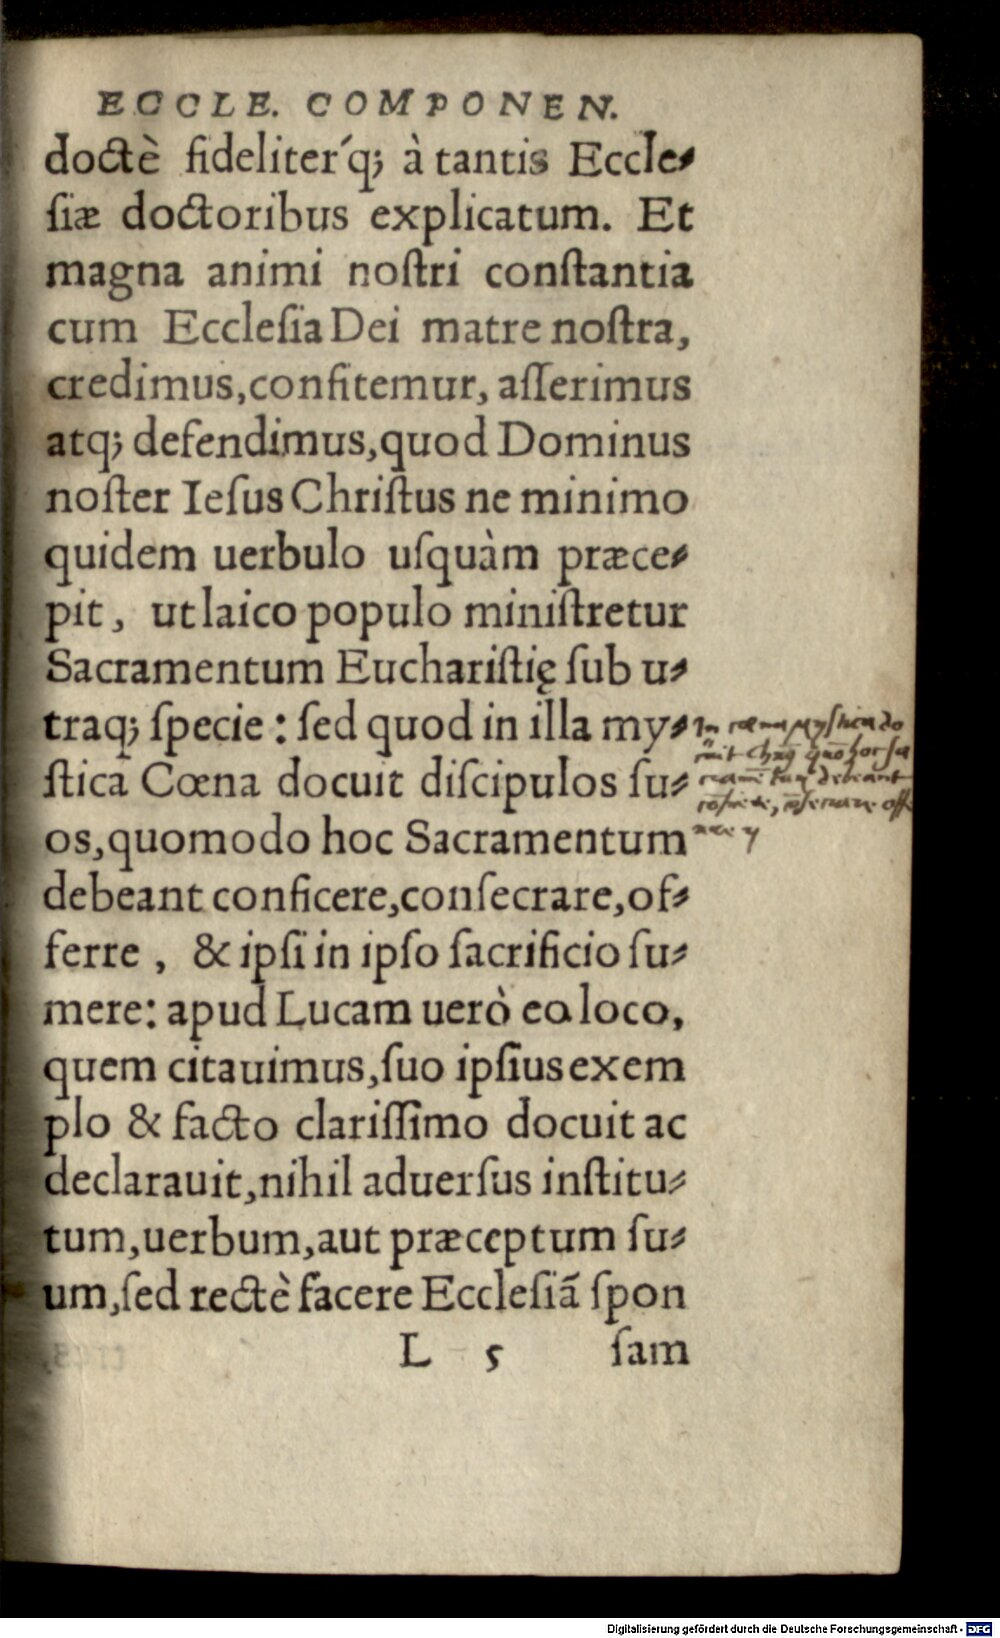 ECCLE. COMPONEN.
doctè fideliter'q; à tantis Eccle⸗
ſiæ doctoribus explicatum. Et
magna animi noſtri conſtantia
cum Eccleſia Dei matre noſtra,
credimus, confitemur, aſſerimus
atq; defendimus, quod Dominus
noſter Ieſus Chriſtus ne minimo
quidem uerbulo uſquàm præce⸗
pit, ut laico populo miniſtretur
Sacramentum Euchariſtię ſub u⸗
traq; ſpecie: ſed quod in illa my⸗
ſtica Cœna docuit diſcipulos ſu⸗
os, quomodo hoc Sacramentum
debeant conficere, conſecrare, of⸗
ferre, & ipſi in ipſo ſacrificio ſu⸗
mere: apud Lucam uerò eo loco,
quem citauimus, ſuo ipſius exem
plo & facto clariſſimo docuit ac
declarauit, nihil aduerſus inſtitu⸗
tum, uerbum, aut præceptum ſu⸗
um, ſed rectè facere Eccleſiã ſpon
L 5 ſam
In cœna myſtica do
debeant
Digitalisierung gefördert durch die Deutsche Forschungsgemeinschaft - DFG